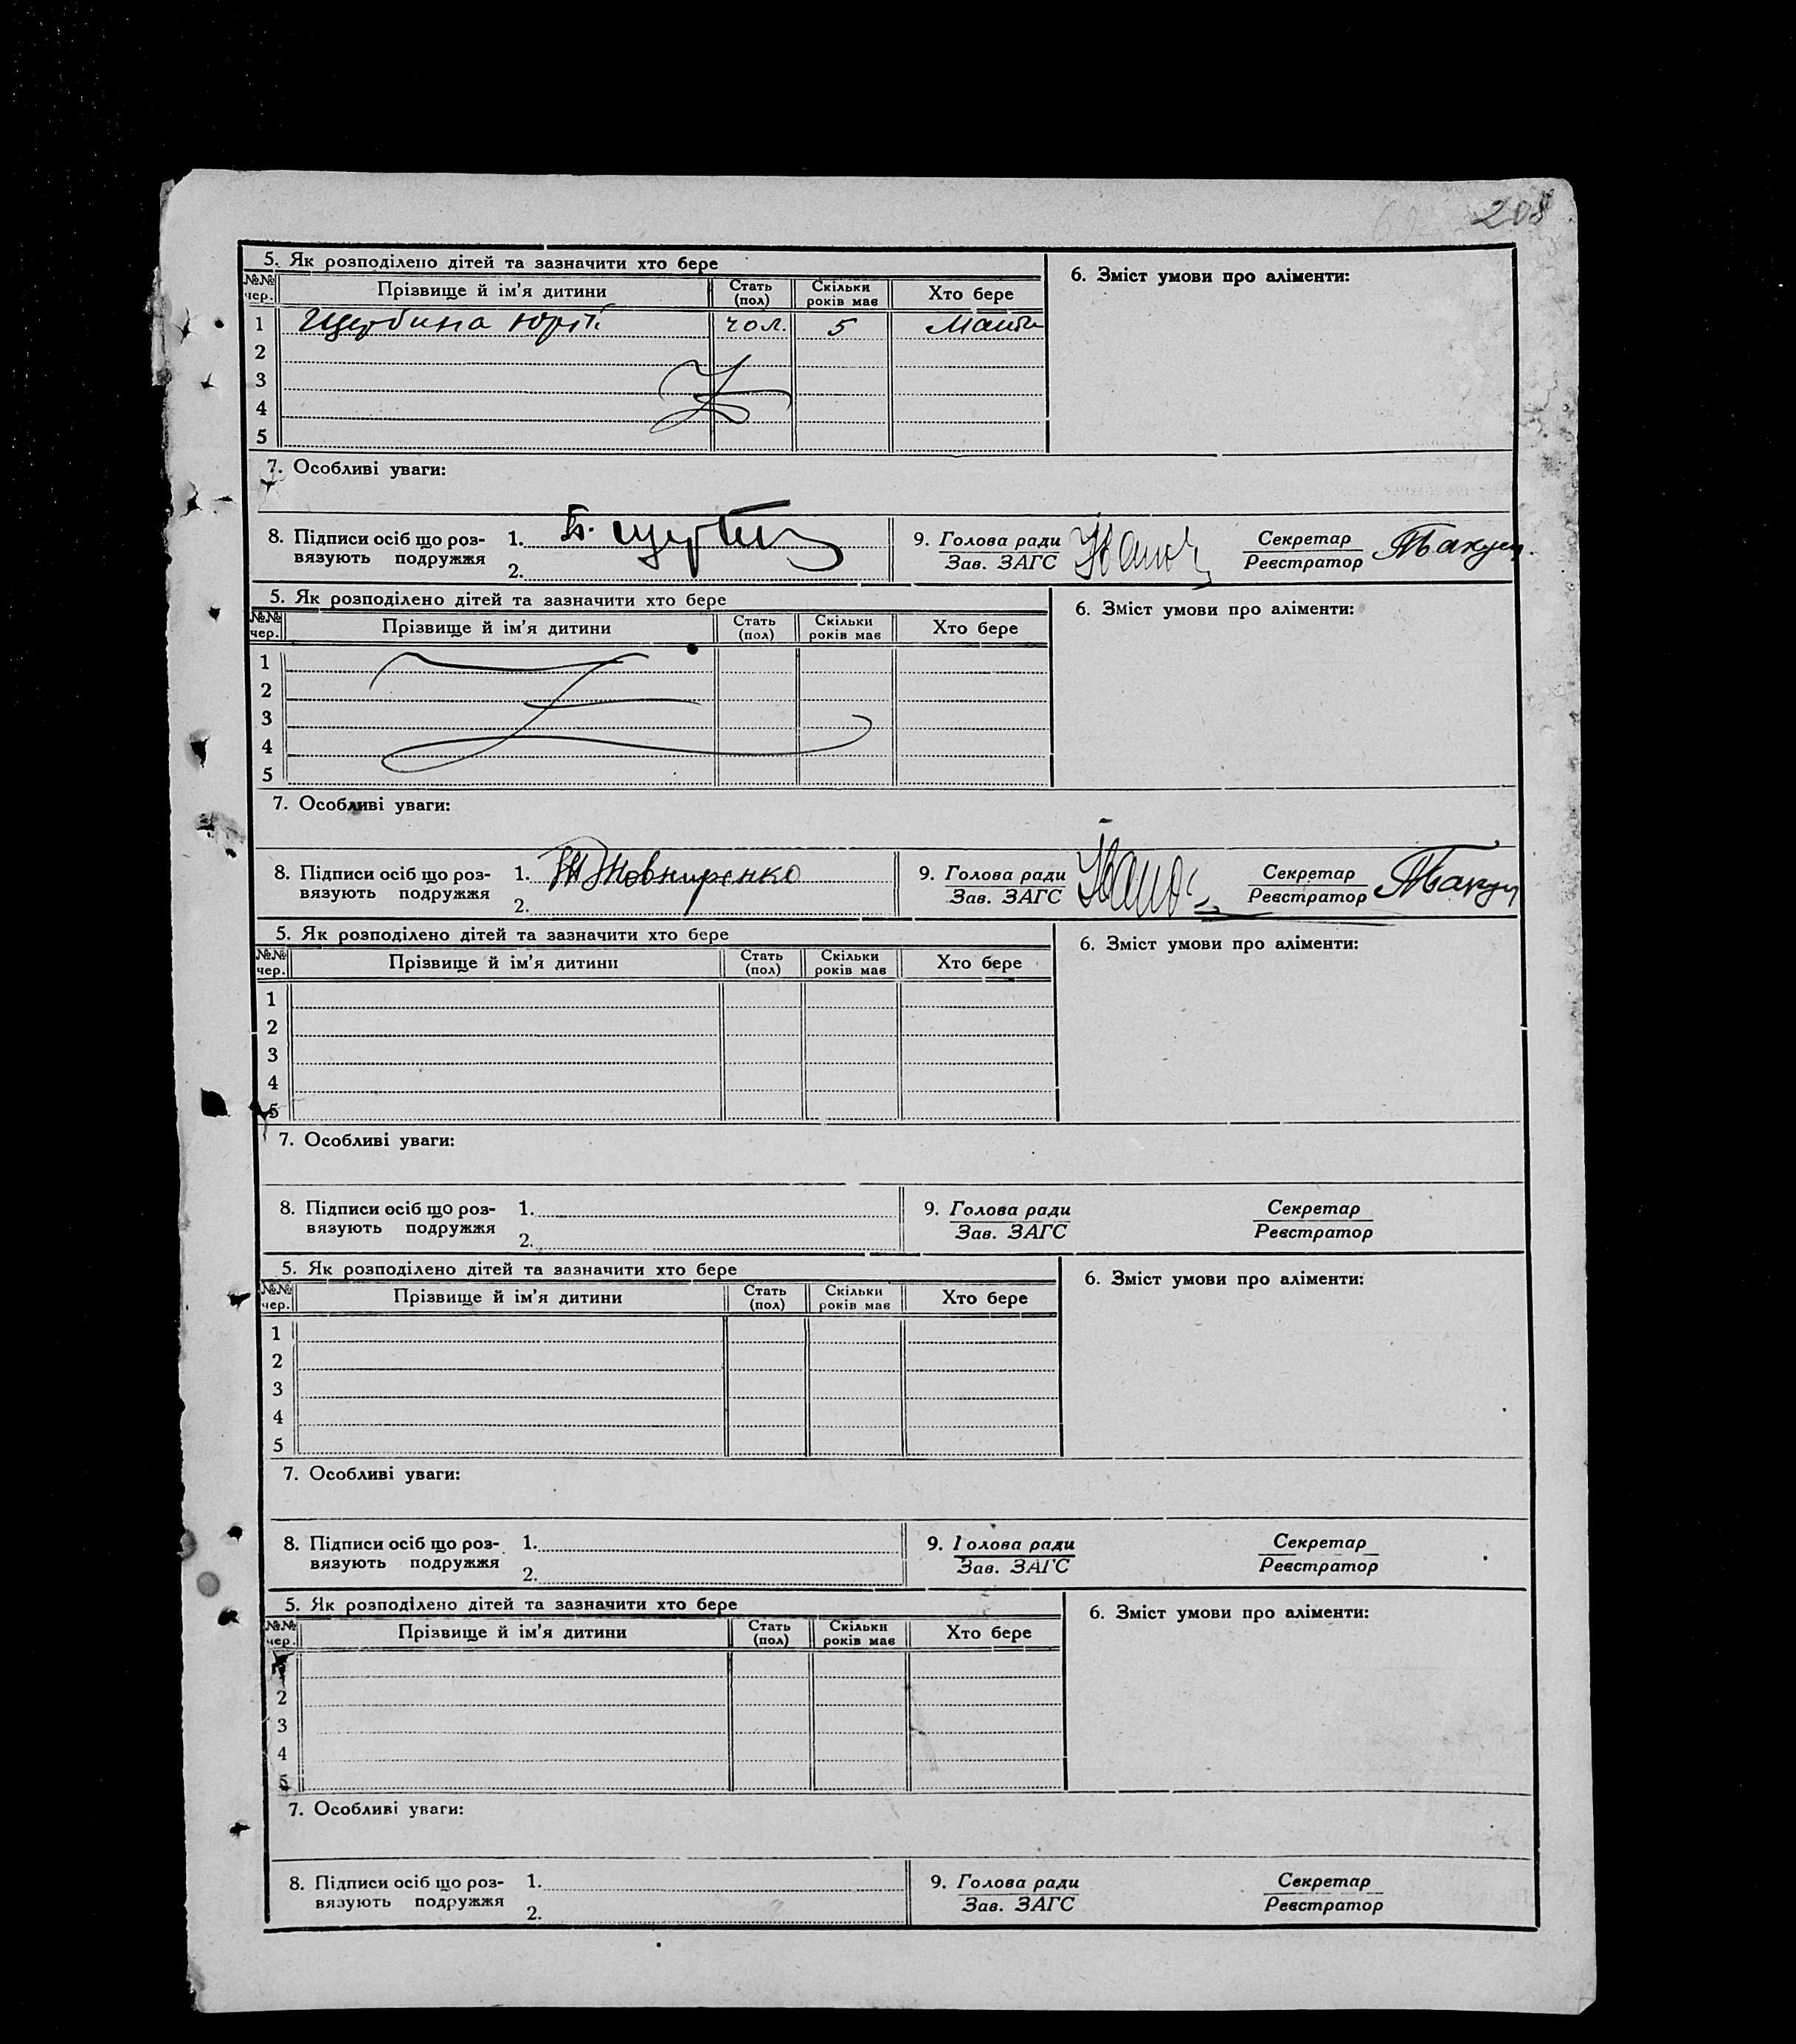 208
5. Як розподілено дітей та зазначити хто бере
6. Зміст умови про аліменти:
№№ чер. Прізвище й ім'я дитини Стать (пол) Скільки років має Хто бере
1 Щербина Юрій чол. 5 Мати
2
3
4
5
7. Особливі уваги:
8. Підписи осіб що роз- 1. 9. Голова ради Секретар
вязують подружжя 2. Зав. ЗАГС Реєстратор
5. Як розподілено дітей та зазначити хто бере
6. Зміст умови про аліменти:
№№ чер. Прізвище й ім'я дитини Стать (пол) Скільки років має Хто бере
1
2
3
4
5
7. Особливі уваги:
8. Підписи осіб що роз- 1. 9. Голова ради Секретар
вязують подружжя 2. Зав. ЗАГС Реєстратор
5. Як розподілено дітей та зазначити хто бере
6. Зміст умови про аліменти:
№№ чер. Прізвище й ім'я дитини Стать (пол) Скільки років має Хто бере
1
2
3
4
5
7. Особливі уваги:
8. Підписи осіб що роз- 1. 9. Голова ради Секретар
вязують подружжя 2. Зав. ЗАГС Реєстратор
5. Як розподілено дітей та зазначити хто бере
6. Зміст умови про аліменти:
№№ чер. Прізвище й ім'я дитини Стать (пол) Скільки років має Хто бере
1
2
3
4
5
7. Особливі уваги:
8. Підписи осіб що роз- 1. 9. Голова ради Секретар
вязують подружжя 2. Зав. ЗАГС Реєстратор
5. Як розподілено дітей та зазначити хто бере
6. Зміст умови про аліменти:
№№ чер. Прізвище й ім'я дитини Стать (пол) Скільки років має Хто бере
1
2
3
4
5
7. Особливі уваги:
8. Підписи осіб що роз- 1. 9. Голова ради Секретар
вязують подружжя 2. Зав. ЗАГС Реєстратор